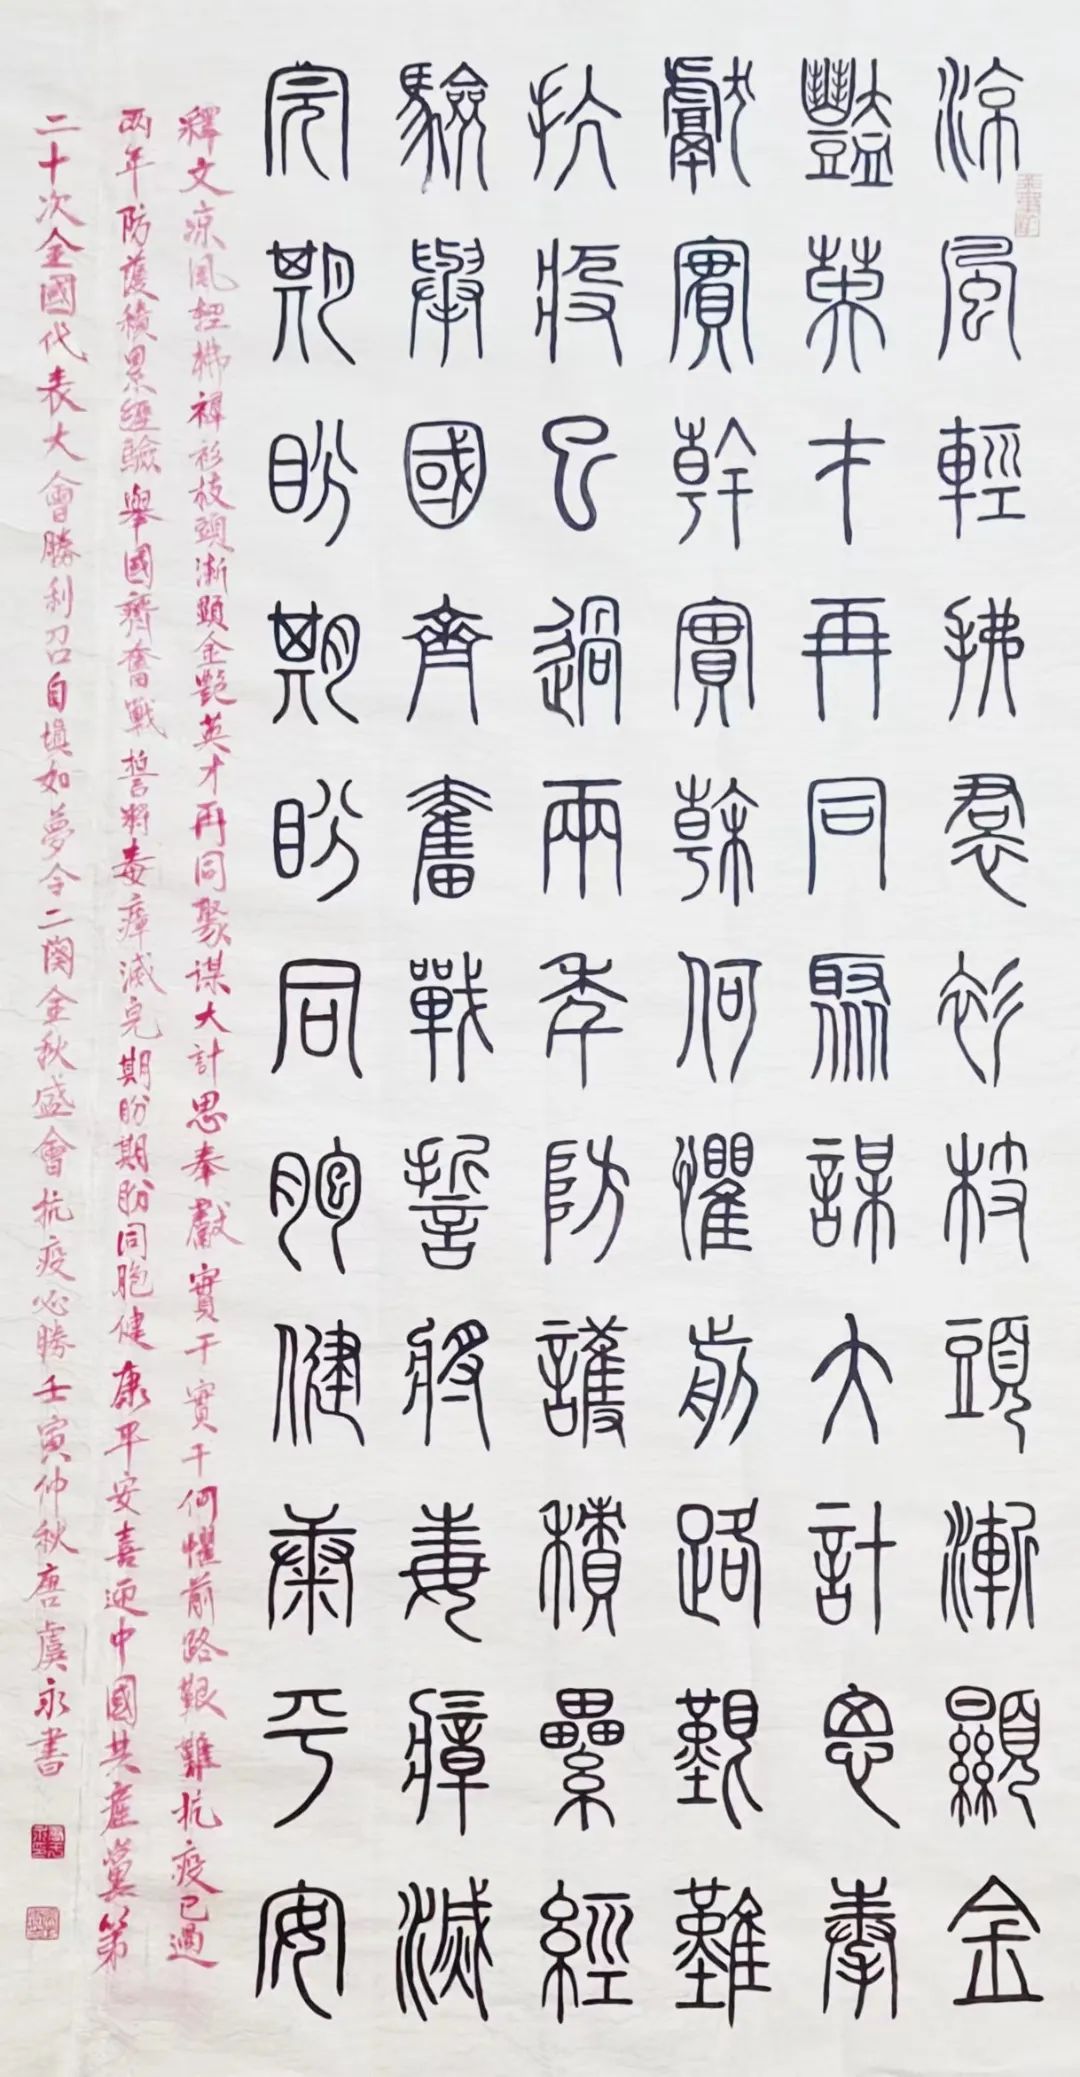 涼風輕拂裙衫枝頭漸顯金
豔英才再同聚謀大計思奉
獻實幹實幹何懼前路艱難
抗疫已過兩年防護積纍經
驗舉國齊奮戰誓將毒瘴滅
完期盼期盼同胞健康平安
釋文涼風輕拂裙衫枝頭漸顯金艷英才再同聚謀大計思奉獻實干實干何懼前路艱難抗疫已過
兩年防護積累經驗舉國齊奮戰誓將毒瘴滅完期盼期盼同胞健康平安喜迎中國共產黨第
二十次全國代表大會勝利召自填如夢令二闋金秋盛會抗疫必勝壬寅仲秋唐虞永書